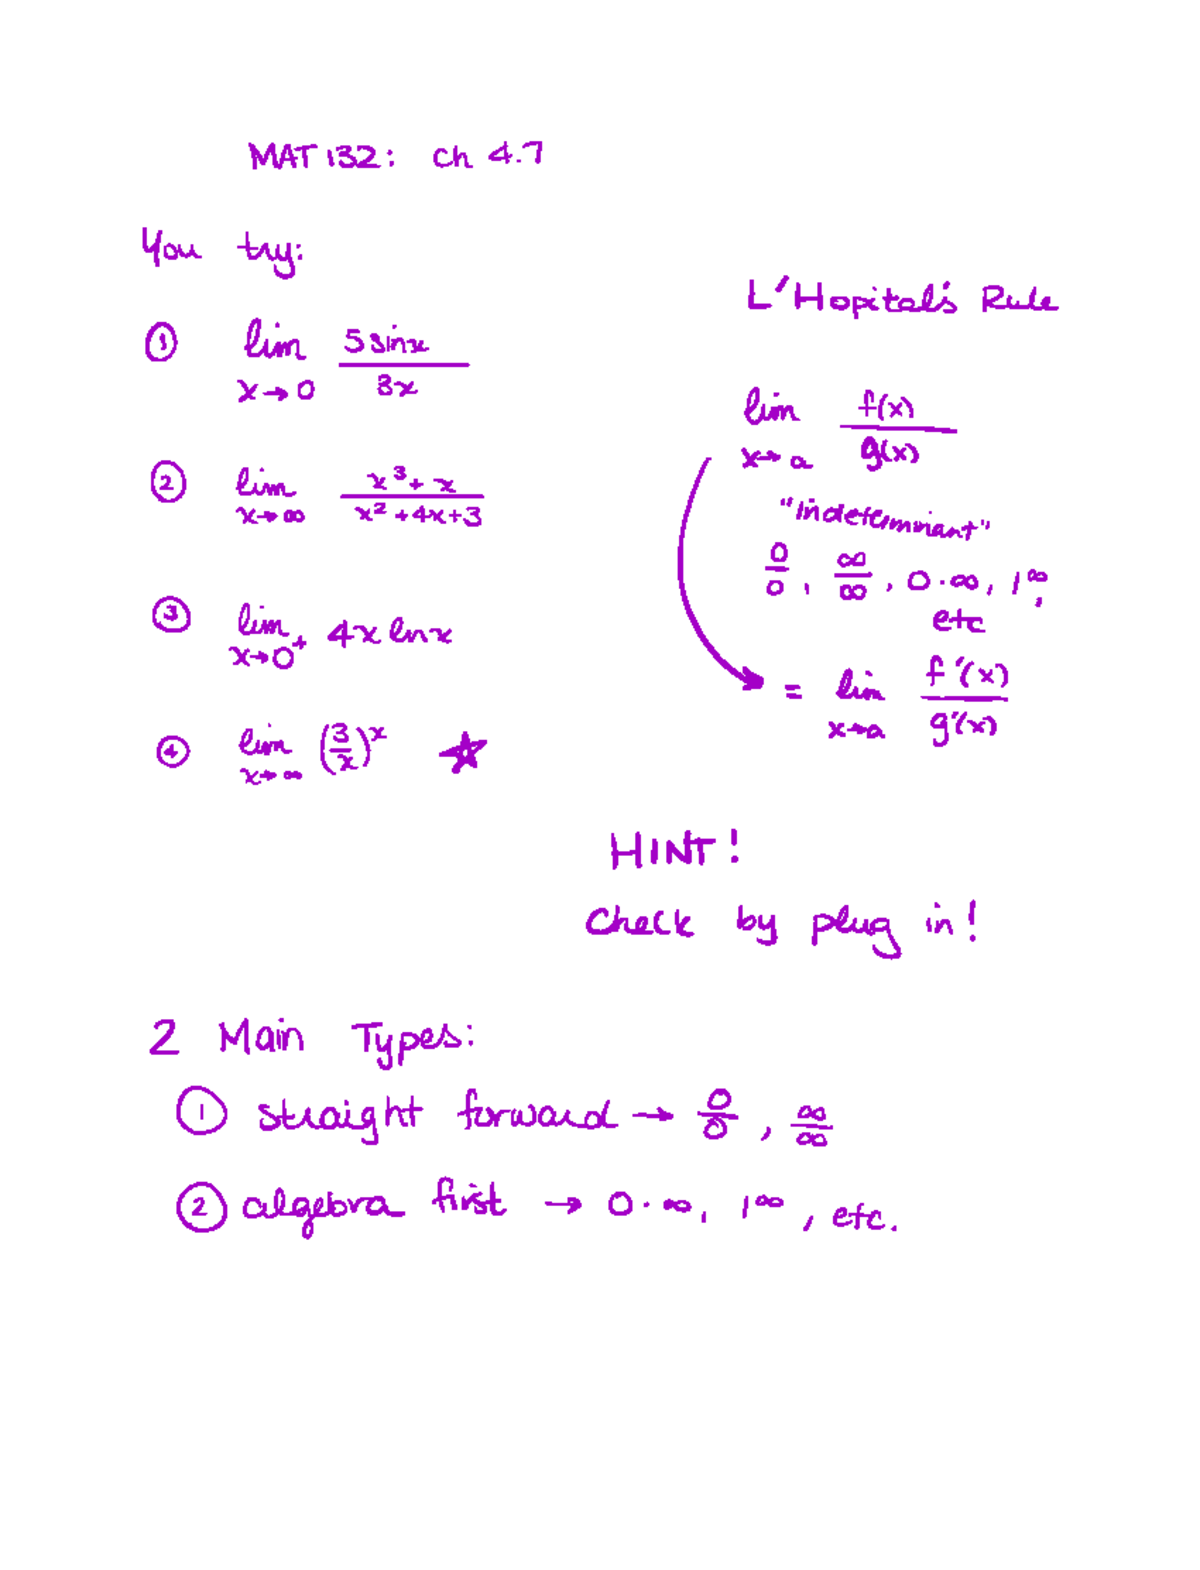 MAT 132: Ch 4.7
You try:
① lim x→0 5 sinx / 3x
② lim x→∞ x³ + x / x² + 4x + 3
③ lim x→0⁺ 4x ln x
④ lim x→∞ (3/x)ˣ ☆
L'Hopital's Rule
lim x→a f(x) / g(x)
"indeterminant"
0/0, ∞/∞, 0·∞, 1^∞,
etc
= lim x→a f'(x) / g'(x)
HINT!
Check by plug in!
2 Main Types:
① straight forward → 0/0, ∞/∞
② algebra first → 0·∞, 1^∞, etc.